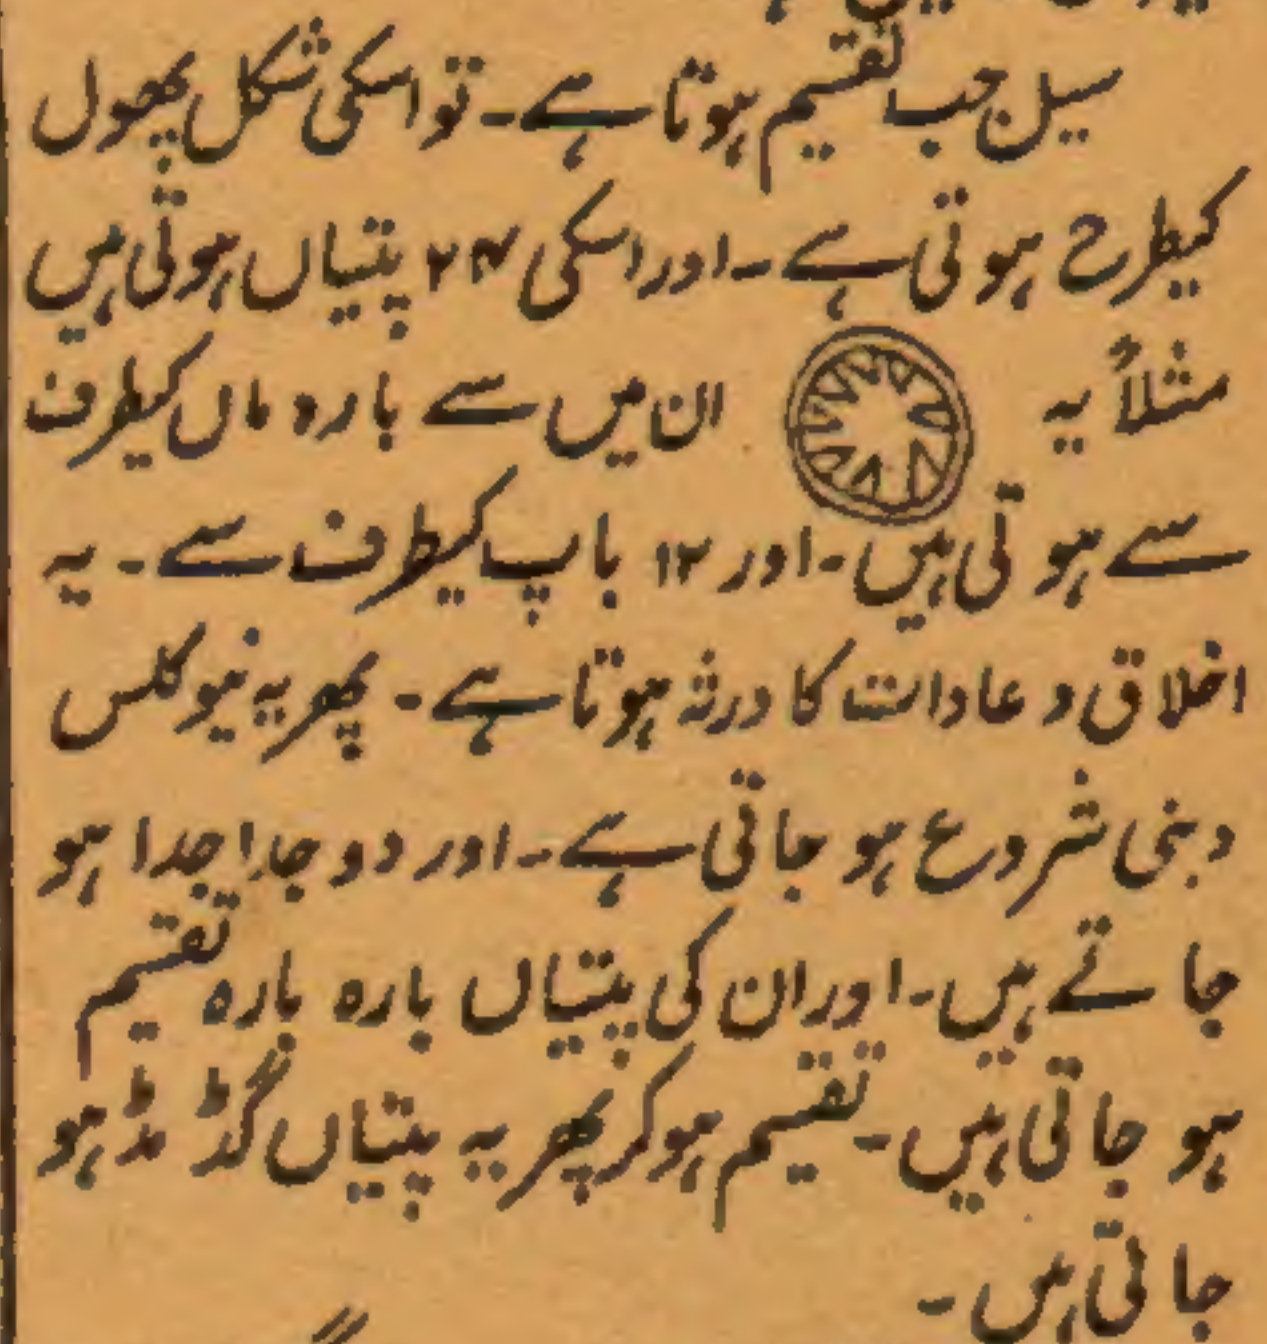 سیل جب تقسیم ہوتا ہے۔ تو اسکی شکل پھول
کیطرح ہوتی ہے۔ اور اسکی ۲۴ پتیاں ہوتی ہیں
مثلاً یہ ان میں سے بارہ ماں کیطرف
سے ہوتی ہیں۔ اور ۱۲ باپ کیطرف سے۔ یہ
اخلاق و عادات کا ورثہ ہوتا ہے۔ پھر یہ نیوکلس
دبنی شروع ہو جاتی ہے۔ اور دو جدا جدا ہو
جاتے ہیں۔ اور ان کی پتیاں بارہ بارہ تقسیم
ہو جاتی ہیں۔ تقسیم ہوکر پھر یہ پتیاں گڈ مڈ ہو
جاتی ہیں۔